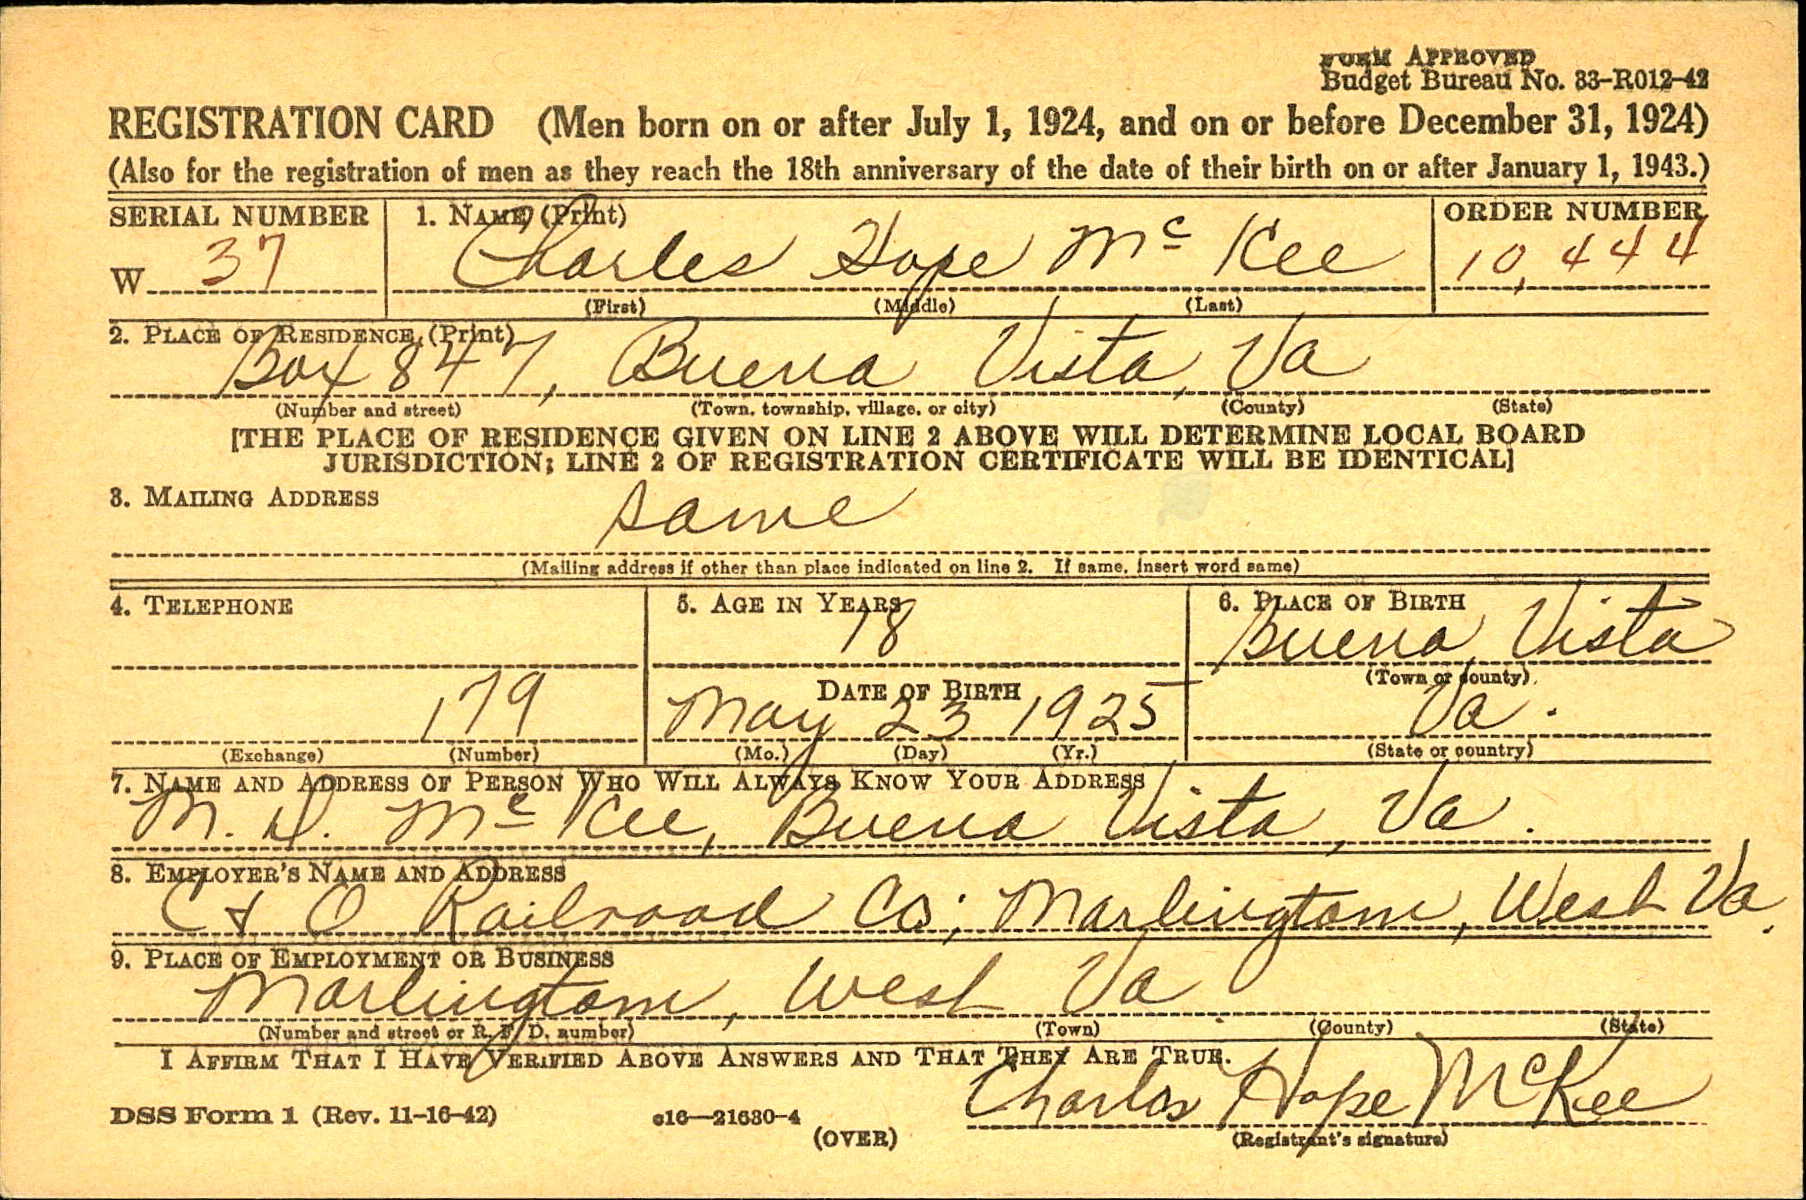 FORM APPROVED
Budget Bureau No. 33-R012-42
REGISTRATION CARD (Men born on or after July 1, 1924, and on or before December 31, 1924)
(Also for the registration of men as they reach the 18th anniversary of the date of their birth on or after January 1, 1943.)
SERIAL NUMBER 1. NAME (Print) ORDER NUMBER
W 37 Charles Hope McKee 10,444
(First) (Middle) (Last)
2. PLACE OF RESIDENCE (Print)
Box 847, Buena Vista, Va
(Number and street) (Town, township, village, or city) (County) (State)
[THE PLACE OF RESIDENCE GIVEN ON LINE 2 ABOVE WILL DETERMINE LOCAL BOARD
JURISDICTION; LINE 2 OF REGISTRATION CERTIFICATE WILL BE IDENTICAL]
3. MAILING ADDRESS
same
(Mailing address if other than place indicated on line 2. If same, insert word same)
4. TELEPHONE 5. AGE IN YEARS 6. PLACE OF BIRTH
18 Buena Vista
(Town or county)
DATE OF BIRTH
179 May 23 1925 Va.
(Exchange) (Number) (Mo.) (Day) (Yr.) (State or country)
7. NAME AND ADDRESS OF PERSON WHO WILL ALWAYS KNOW YOUR ADDRESS
M. D. McKee, Buena Vista, Va.
8. EMPLOYER'S NAME AND ADDRESS
C & O Railroad Co; Marlingtom, West Va.
9. PLACE OF EMPLOYMENT OR BUSINESS
Marlingtom, West Va.
(Number and street or R. F. D. number) (Town) (County) (State)
I AFFIRM THAT I HAVE VERIFIED ABOVE ANSWERS AND THAT THEY ARE TRUE.
Charles Hope McKee
DSS Form 1 (Rev. 11-16-42) c16—21630-4
(OVER) (Registrant's signature)